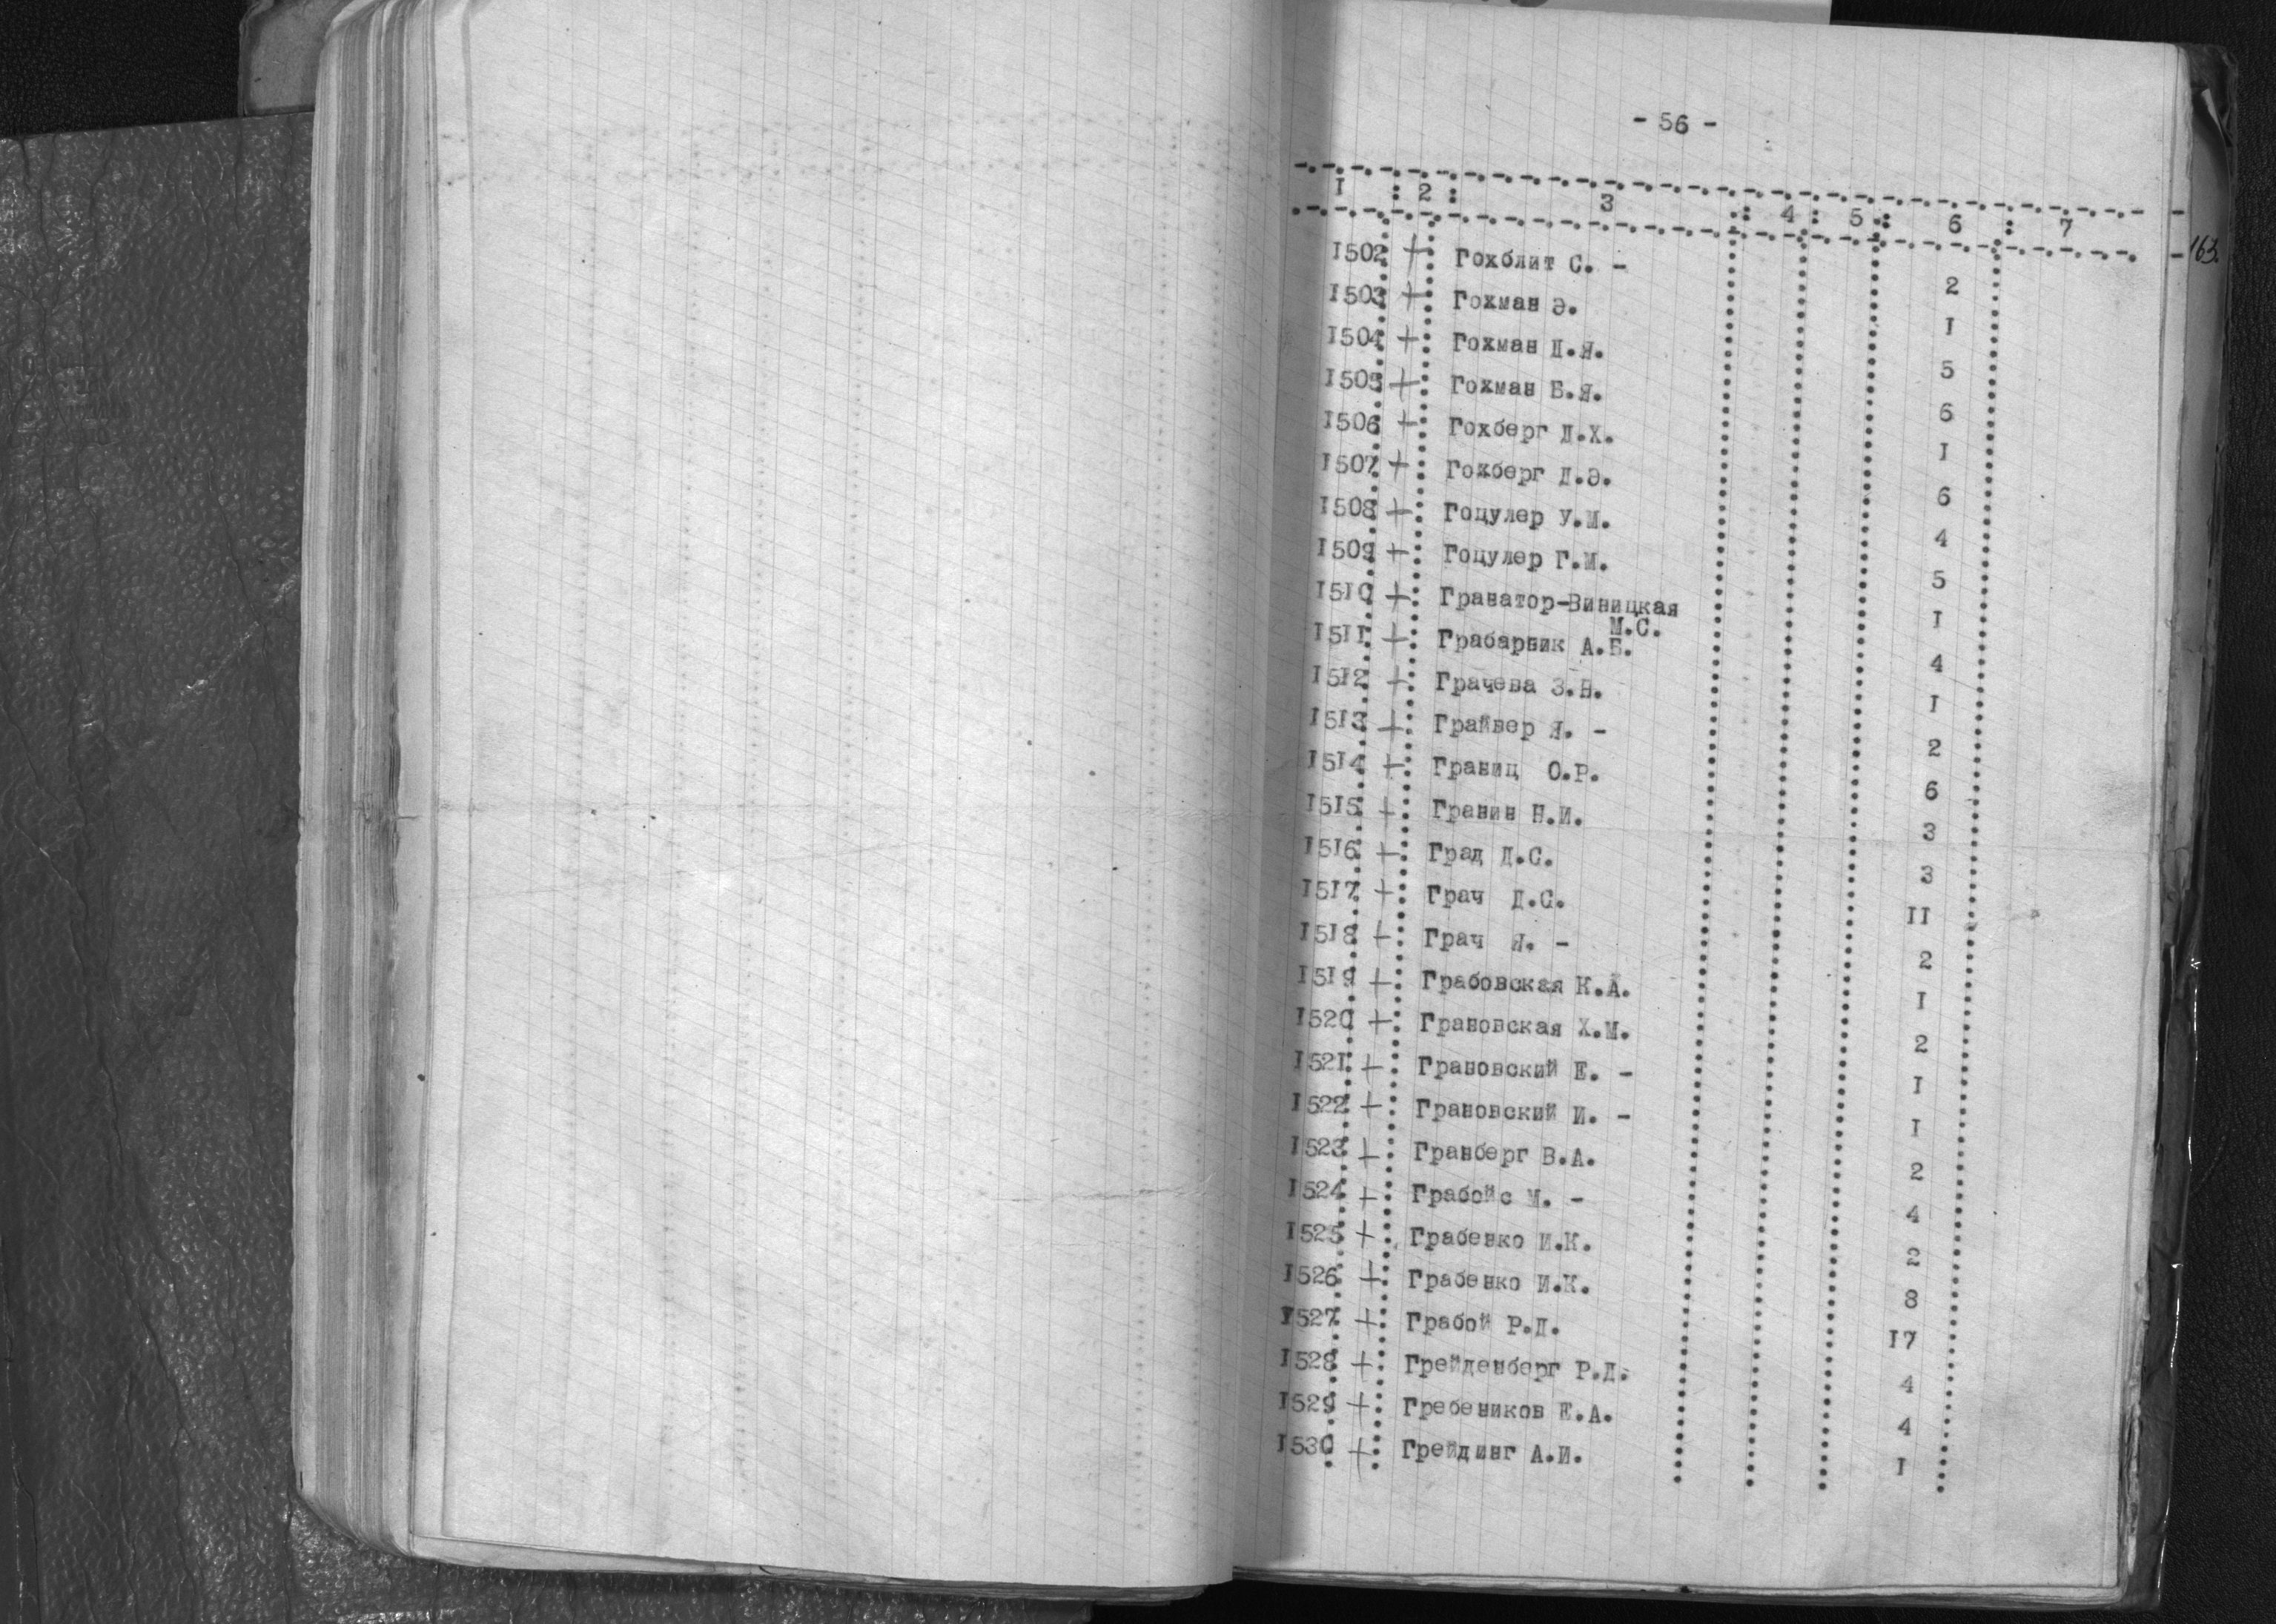 - 56 -
I : 2 : 3 : 4 : 5 : 6 : 7
163.
I502 + Гохблит С. - 2
I503 + Гохман Э. I
I504 + Гохман Д.Я. 5
I505 + Гохман Б.Я. 6
I506 + Гохберг Д.Х. I
I507 + Гохберг Д.Э. 6
I508 + Гоцулер У.М. 4
I509 + Гоцулер Г.М. 5
I510 + Гранатор-Виницкая М.С. I
I5II + Грабарник А.Б. 4
I5I2 + Грачева З.Н. I
I5I3 + Грайвер Я. - 2
I5I4 + Границ О.Р. 6
I5I5 + Гранин Н.И. 3
I5I6 + Град Д.С. 3
I5I7 + Грач Д.С. II
I5I8 + Грач Я. - 2
I5I9 + Грабовская К.А. I
I520 + Грановская Х.М. 2
I52I + Грановский Е. - I
I522 + Грановский И. - I
I523 + Гранберг В.А. 2
I524 + Грабойс М. - 4
I525 + Грабенко И.К. 2
I526 + Грабенко И.К. 8
I527 + Грабой Р.Д. I7
I528 + Грейденберг Р.Д. 4
I529 + Гребеников Е.А. 4
I530 + Грейдинг А.И. I